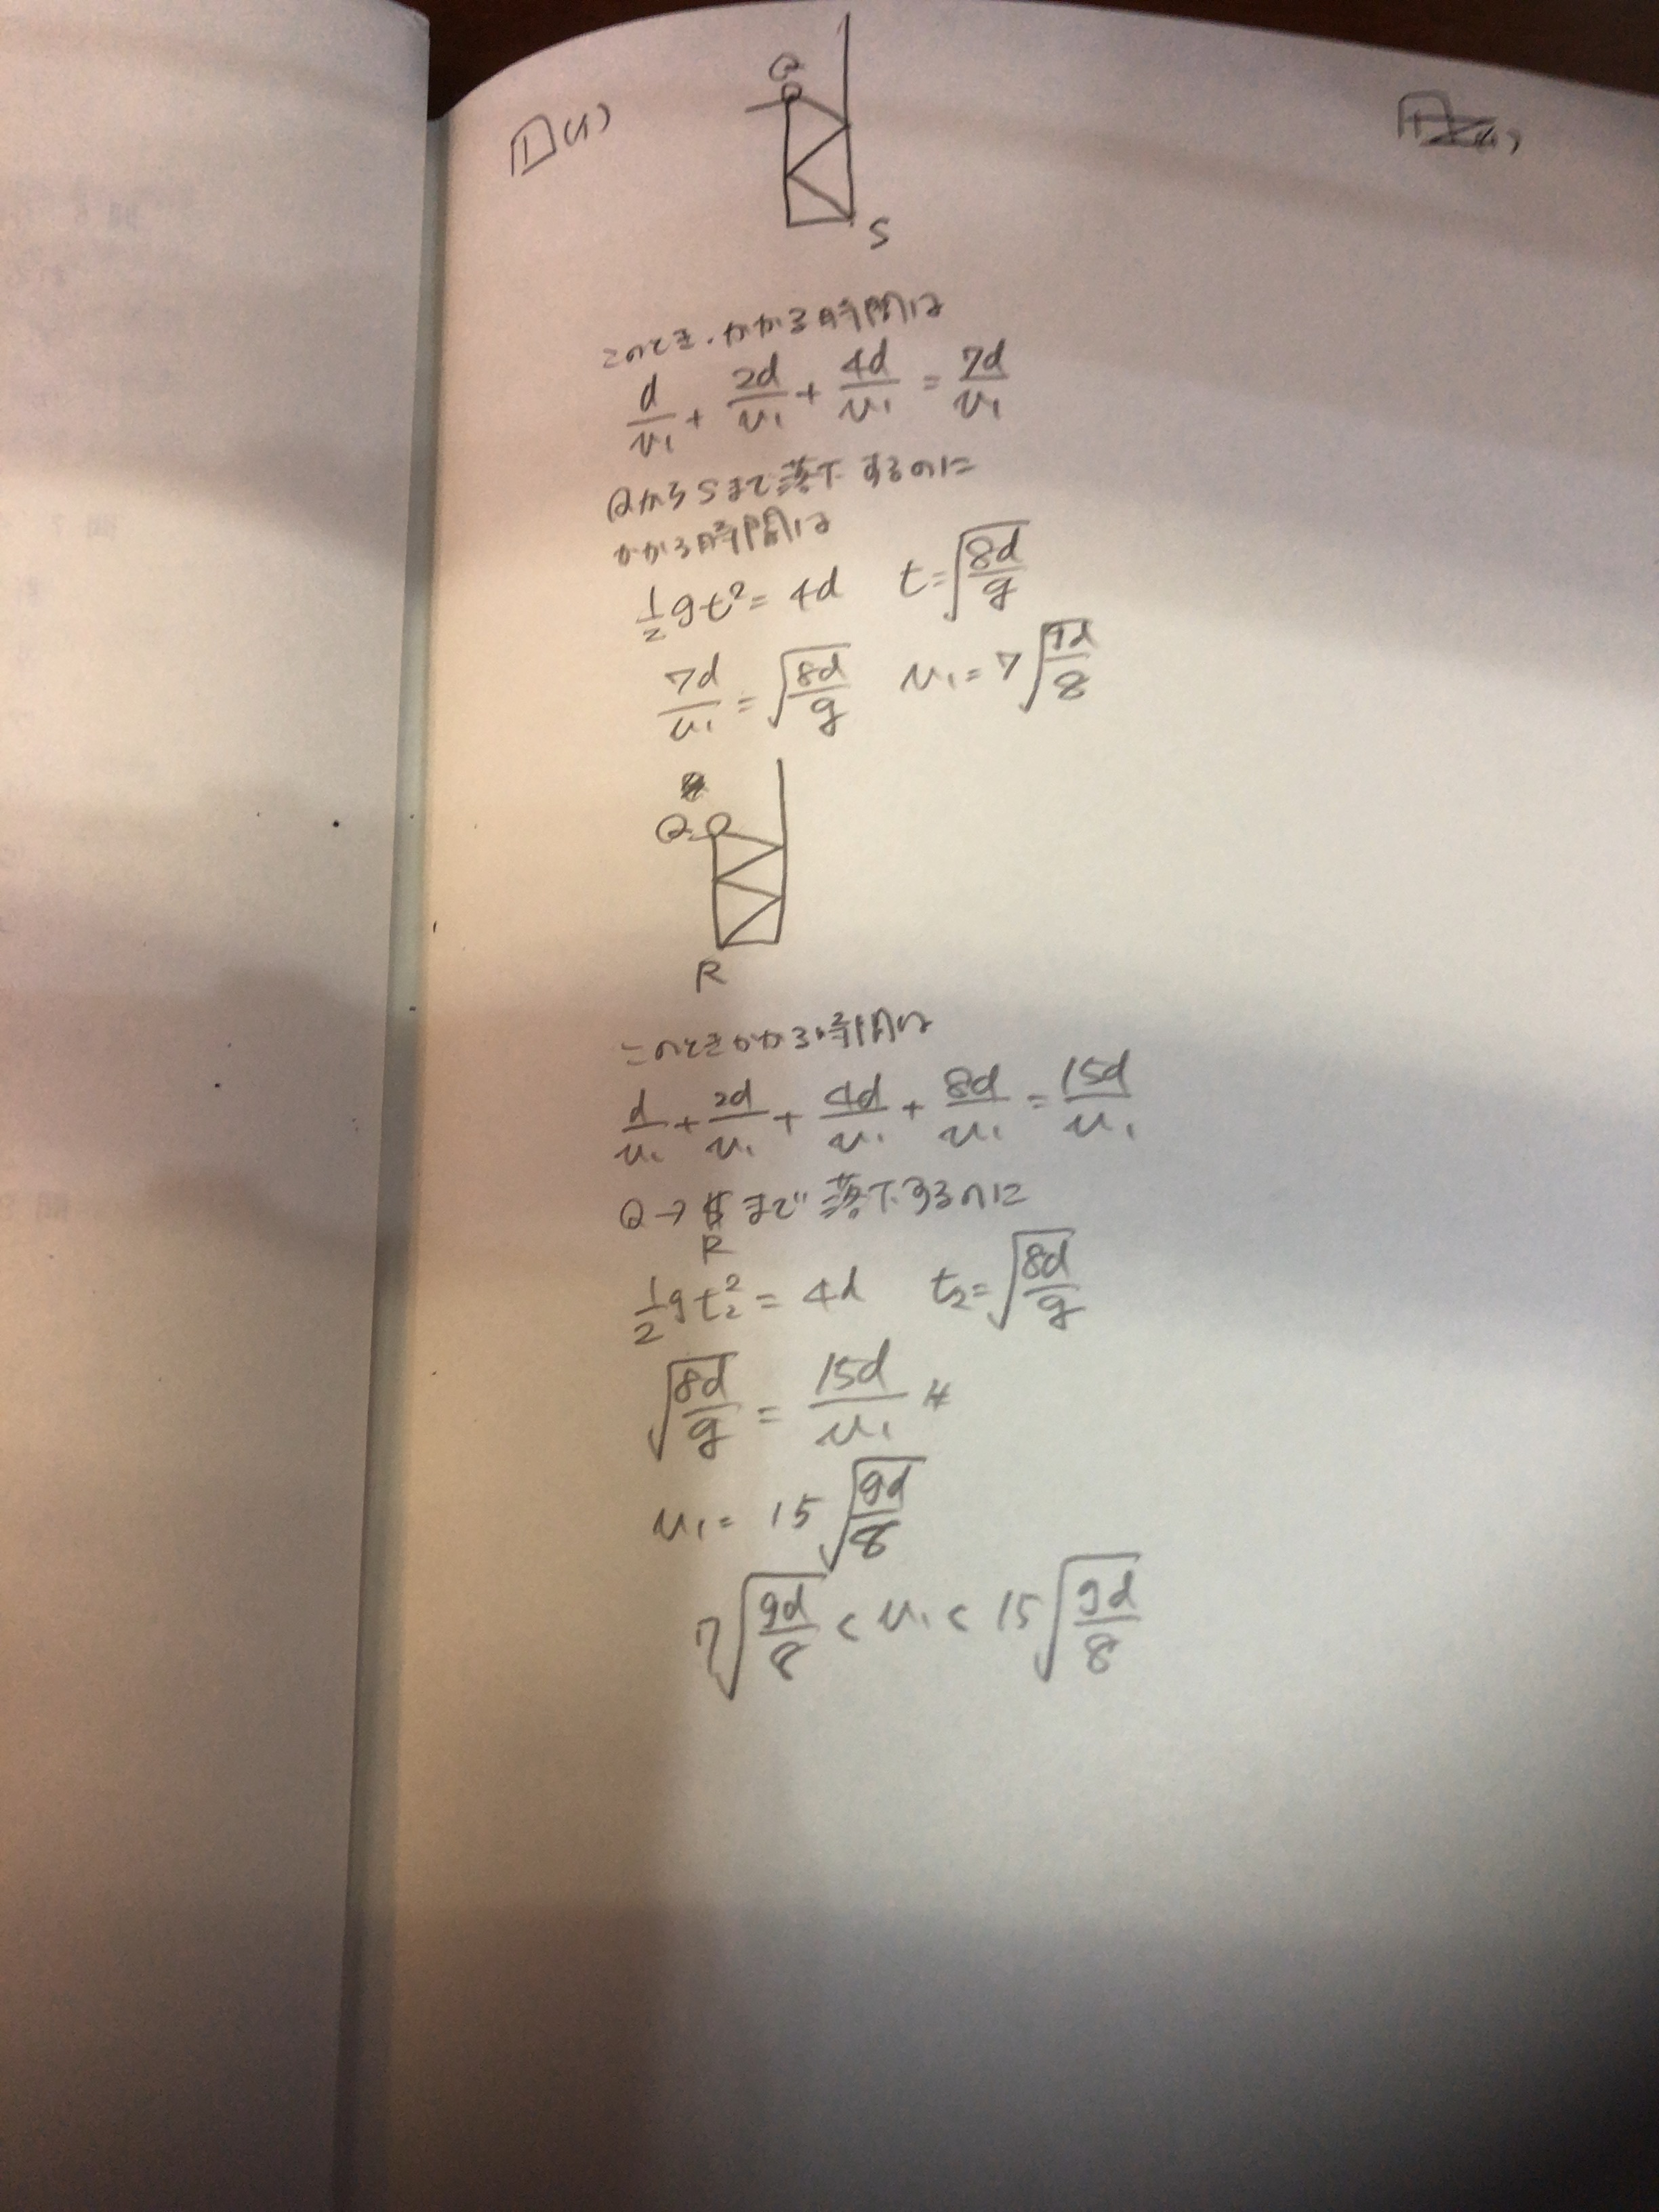 1 (1)
Q
S
このとき、かかる時間は
d/v₁ + 2d/v₁ + 4d/v₁ = 7d/v₁
QからSまで落下するのに
かかる時間は
1/2 gt² = 4d t = √(8d/g)
7d/v₁ = √(8d/g) v₁ = 7√(gd/8)
Q
R
このときかかる時間は
d/v₁ + 2d/v₁ + 4d/v₁ + 8d/v₁ = 15d/v₁
Q→Rまで落下するのに
1/2 gt₂² = 4d t₂ = √(8d/g)
√(8d/g) = 15d/v₁
v₁ = 15√(gd/8)
7√(gd/8) < v₁ < 15√(gd/8)